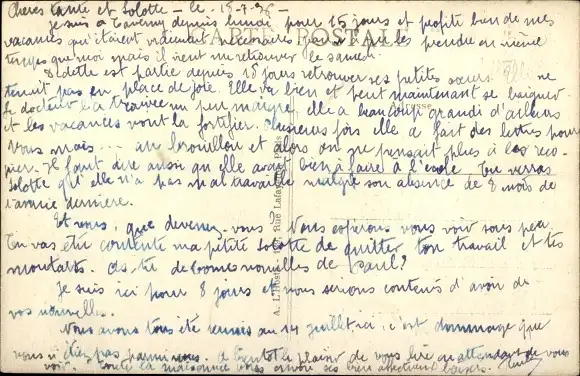 Chères tante et Lolotte - le 15-7-36 -
Je suis à Taverny depuis lundi pour 15 jours et profite bien de mes
vacances qui étaient vraiment nécessaires. peut pas les prendre en même
temps que moi mais il vient me retrouver le samedi.
Odette est partie depuis 15 jours retrouver ses petites sœurs. Elle ne
tenait pas en place de joie. Elle va bien et peut maintenant se baigner.
Le docteur l'a trouvée un peu maigre, elle a beaucoup grandi d'ailleurs
et les vacances vont la fortifier. Plusieurs fois elle a fait des lettres pour
vous mais ... au brouillon et alors on ne pensait plus à les reco-
pier. Il faut dire aussi qu'elle avait bien à faire à l'école. Tu verras
Lolotte qu'elle n'a pas mal travaillé malgré son absence de 2 mois de
l'année dernière.
Et vous, que devenez-vous ? Nous espérons vous voir sous peu.
Tu vas être contente ma petite Lolotte de quitter ton travail et tes
moutards. As-tu de bonnes nouvelles de Paul ?
Je suis ici pour 8 jours et nous serions contents d'avoir de
vos nouvelles.
Nous avons tous été réunis au 14 juillet ici, c'est dommage que
vous n'étiez pas parmi nous. A bientôt le plaisir de vous lire en attendant de vous
voir. Toute la vous envoie ses bien affectueux baisers.
CARTE POSTALE
Adresse
Rue Lafayette